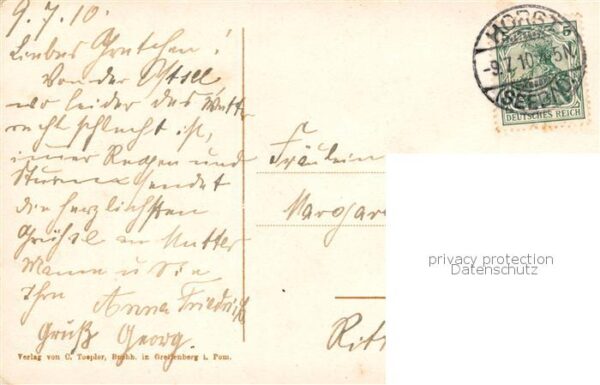 9.7.10.
Liebes Gretchen!
Von der Ostsee
wo leider das Wetter
recht schlecht ist,
immer Regen und
Sturm sendet
die herzlichsten
Grüße an Mutter
Mama u Sie
Ihre Anna Friedrich
Gruß Georg.
Verlag von C. Toepler, Buchh. in Greifenberg i. Pom.
HORST
-9.7.10. 5N
(SEEBAD)
5
DEUTSCHES REICH
Fräulein
Margar
Ritt
privacy protection
Datenschutz